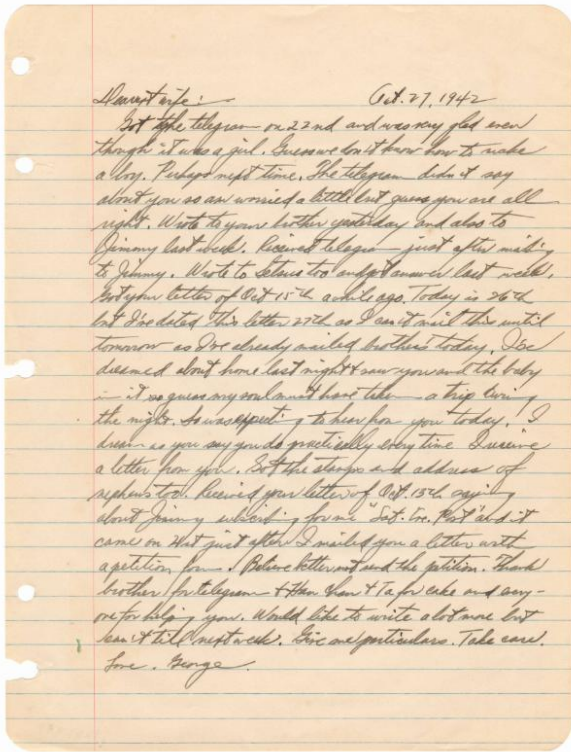 Dearest wife: Oct. 27, 1942
Got the telegram on 22nd and was very glad even
though it was a girl. Guess we don't know how to make
a boy. Perhaps next time. The telegram didn't say
about you so am worried a little but guess you are all
right. Wrote to your brother yesterday and also to
Jimmy last week. Received telegram just after mailing
to Jimmy. Wrote to too and got answer last week.
Got your letter of Oct 15th awhile ago. Today is 26th
but I've dated this letter 27th as I can't mail this until
tomorrow as I've already mailed brother's today. I've
dreamed about home last night & saw you and the baby
in it so guess my soul must have taken a trip during
the night. So was expecting to hear from you today. I
dream as you say you do practically every time I receive
a letter from you. Got the stamps and address of
nephews too. Received your letter of Oct. 15th saying
about Jimmy subscribing for me "Sat. Eve. Post" and it
came on just after I mailed you a letter with
a petition form. Believe better not send the petition. Thank
brother for telegram & Han Chan & Ta for cake and every-
one for helping you. Would like to write a lot more but
can't till next week. Give me particulars. Take care.
Love. George.